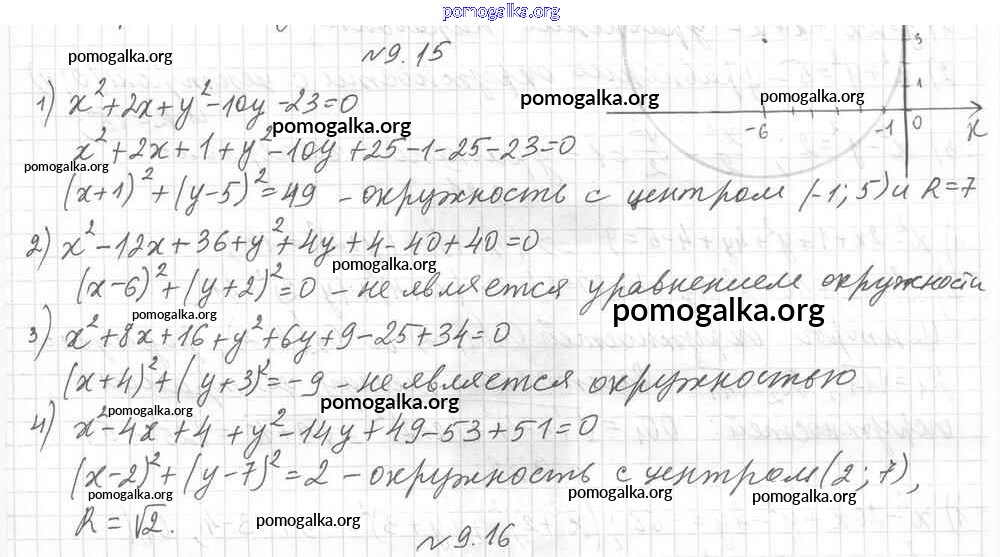 pomogalka.org
№9.15
pomogalka.org
1) x²+2x+y²-10y-23=0
pomogalka.org
pomogalka.org
3
1
-6 -1 0 x
pomogalka.org
x²+2x+1+y²-10y+25-1-25-23=0
pomogalka.org
(x+1)²+(y-5)²=49 - окружность с центром (-1; 5) и R=7
2) x²-12x+36+y²+4y+4-40+40=0
pomogalka.org
(x-6)²+(y+2)²=0 - не является уравнением окружности
pomogalka.org
pomogalka.org
3) x²+8x+16+y²+6y+9-25+34=0
(x+4)²+(y+3)²=-9 - не является окружностью
pomogalka.org
pomogalka.org
4) x²-4x+4+y²-14y+49-53+51=0
(x-2)²+(y-7)²=2 - окружность с центром (2; 7),
pomogalka.org
pomogalka.org
pomogalka.org
R=√2.
pomogalka.org
№9.16